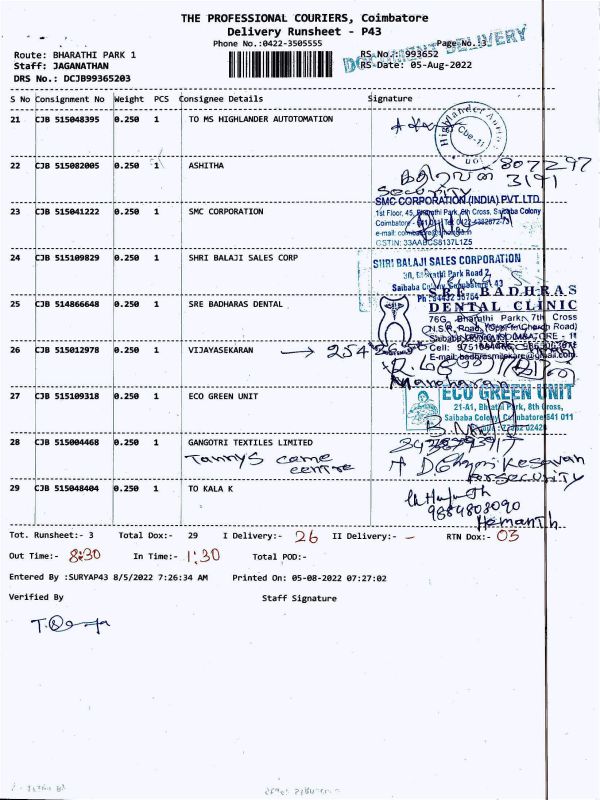 THE PROFESSIONAL COURIERS, Coimbatore
Delivery Runsheet - P43
Phone No.:0422-3505555 Page No.:3
DOCUMENT DELIVERY
Route: BHARATHI PARK 1 RS No.: 993652
Staff: JAGANATHAN RS Date: 05-Aug-2022
DRS No.: DCJB99365203
S No Consignment No Weight PCS Consignee Details Signature
21 CJB 515048395 0.250 1 TO MS HIGHLANDER AUTOTOMATION
Highlander
Cbe-11
22 CJB 515082005 0.250 1 ASHITHA
807297
3191
Security
SMC CORPORATION (INDIA) PVT. LTD
23 CJB 515041222 0.250 1 SMC CORPORATION
1st Floor, 45, Bharathi Park, 6th Cross, Saibaba Colony
GSTIN: 33AABCS8137L1Z5
24 CJB 515109829 0.250 1 SHRI BALAJI SALES CORP
SHRI BALAJI SALES CORPORATION
Bharathi Park Road 2,
25 CJB 514866648 0.250 1 SRE BADHARAS DENTAL
SRE BADHRAS
DENTAL CLINIC
76G, Bharathi Park 7th Cross
N.S.R. Road, Church Road)
26 CJB 515012978 0.250 1 VIJAYASEKARAN
Manoharan
27 CJB 515109318 0.250 1 ECO GREEN UNIT
ECO GREEN UNIT
21-A1, Bharathi Park, 8th Cross,
Saibaba Colony, Coimbatore 641 011
28 CJB 515004468 0.250 1 GANGOTRI TEXTILES LIMITED
Tannys came
centre
Kesavan
Security
29 CJB 515048404 0.250 1 TO KALA K
9884808090
Hemanth
Tot. Runsheet:- 3 Total Dox:- 29 I Delivery:- 26 II Delivery:- - RTN Dox:- 03
Out Time:- 8:30 In Time:- 1:30 Total POD:-
Entered By :SURYAP43 8/5/2022 7:26:34 AM Printed On: 05-08-2022 07:27:02
Verified By Staff Signature